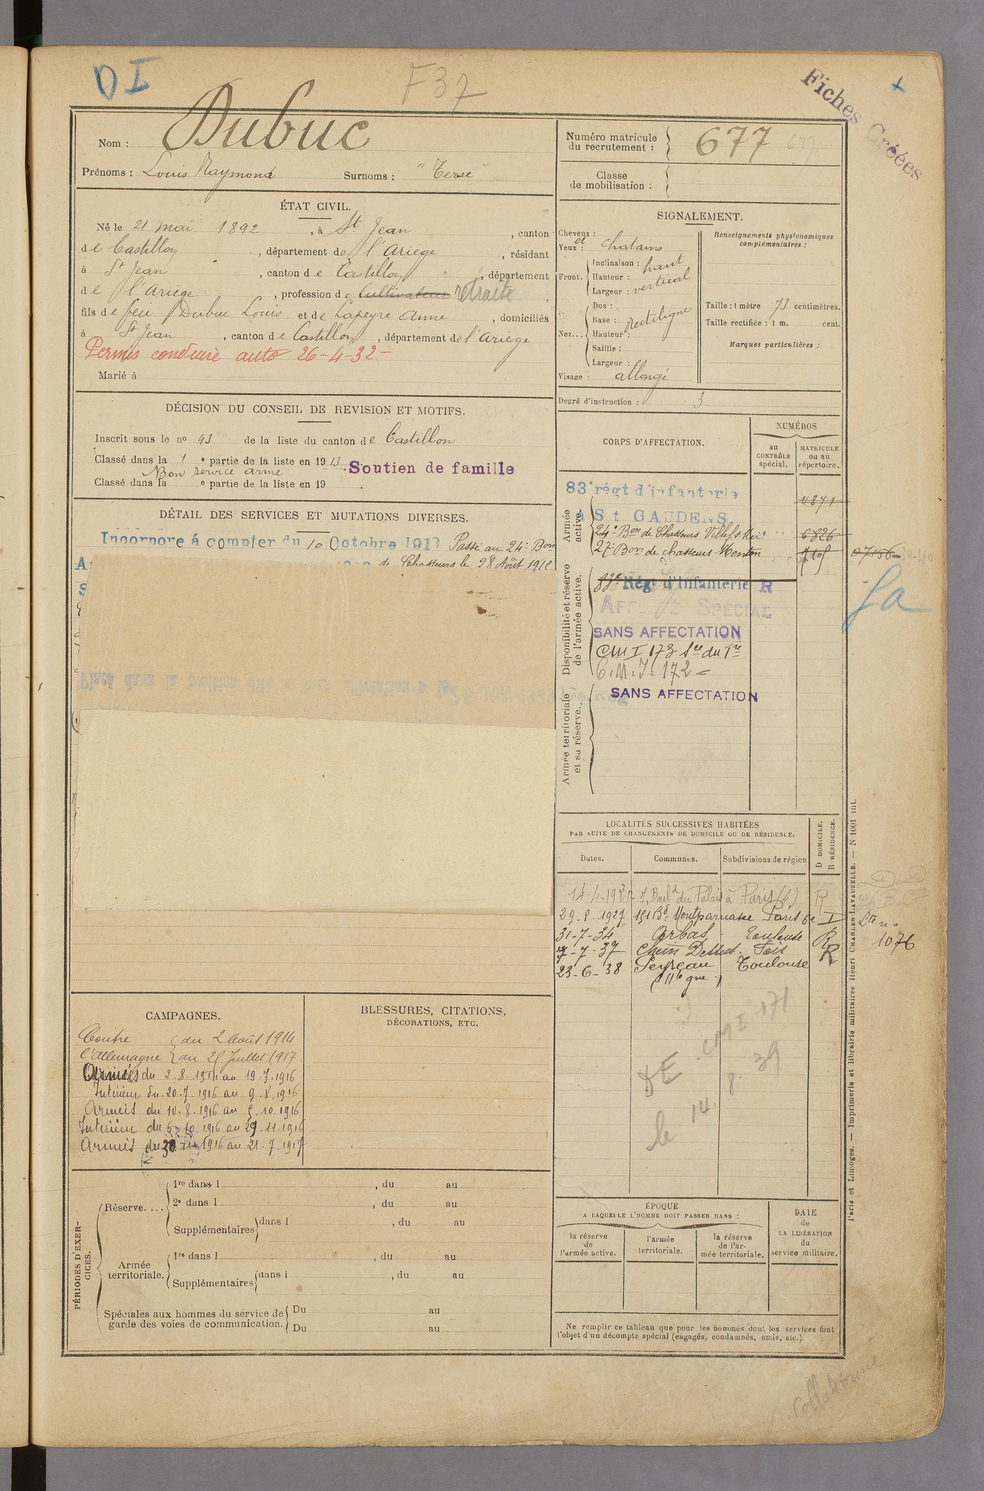 DI
F37
Fiches Créées
Nom : Dubuc
Prénoms : Louis Raymond Surnoms : "Terse"
Numéro matricule du recrutement : 677
Classe de mobilisation :
ÉTAT CIVIL.
Né le 21 mai 1892, à St Jean, canton
de Castillon, département de l'Ariège, résidant
à St Jean, canton de Castillon, département
de l'Ariège, profession de Cultivateur retraité
fils de feu Dubuc Louis et de Lapeyre Anne, domiciliés
à St Jean, canton de Castillon, département de l'Ariège
Permis conduire auto 26-4-32-
Marié à
SIGNALEMENT.
Cheveux :
et
Yeux : chatains
Front. Inclinaison : haut
Hauteur :
Largeur : vertical
Nez... Dos :
Base : rectiligne
Hauteur :
Saillie :
Largeur :
Visage : allongé
Renseignements physionomiques complémentaires :
Taille : 1 mètre 73 centimètres.
Taille rectifiée : 1 m. cent.
Marques particulières :
Degré d'instruction : 3
DÉCISION DU CONSEIL DE REVISION ET MOTIFS.
Inscrit sous le no 43 de la liste du canton de Castillon
Classé dans la 1 e partie de la liste en 1913. Soutien de famille
Bon service armé
Classé dans la e partie de la liste en 19
DÉTAIL DES SERVICES ET MUTATIONS DIVERSES.
Incorporé à compter du 10 Octobre 1913 Passé au 24e Bon
de Chasseurs le 28 Août 191
CORPS D'AFFECTATION.
NUMÉROS
au CONTRÔLE spécial.
MATRICULE ou au répertoire.
Armée active.
83e régt d'infanterie 4871
à St GAUDENS
24e Bon de Chasseurs Villefche 6826
27e Bon de chasseurs Menton
Disponibilité et réserve de l'armée active.
83e Rég. d'Infanterie R
AFFECTÉ SPÉCIAL
SANS AFFECTATION
CMI 173
C.M.I. 172
Armée territoriale et sa réserve.
SANS AFFECTATION
LOCALITÉS SUCCESSIVES HABITÉES
PAR SUITE DE CHANGEMENTS DE DOMICILE OU DE RÉSIDENCE.
Dates. Communes. Subdivisions de région
D DOMICILE. R RÉSIDENCE.
Boul du Palais à Paris (4) R
29.8.1927 151 Bd Montparnasse Paris 6e
31-7-34 Arbas Toulouse R
7-7-37 Foix R
23-6-38 Toulouse
(Hte gne)
1076
CMI 171
le 14.8.39
CAMPAGNES.
Contre du 2 août 1914
l'Allemagne au 21 Juillet 1917
Armées du 2.8.1914 au 19.7.1916
Intérieur du 20.7.1916 au 9.8.1916
Armées du 10.8.1916 au 5.10.1916
Intérieur du 6.10.1916 au 29.11.1916
Armées du 30.11.1916 au 21.7.1917
BLESSURES, CITATIONS,
DÉCORATIONS, ETC.
PÉRIODES D'EXERCICES.
Réserve....
1re dans l , du au
2e dans l , du au
Supplémentaires dans l , du au
Armée territoriale.
1re dans l , du au
Supplémentaires dans l , du au
Spéciales aux hommes du service de garde des voies de communication.
Du au
Du au
ÉPOQUE
A LAQUELLE L'HOMME DOIT PASSER DANS :
la réserve de l'armée active.
l'armée territoriale.
la réserve de l'armée territoriale.
DATE
de
LA LIBÉRATION
du
service militaire.
Ne remplir ce tableau que pour les hommes dont les services font
l'objet d'un décompte spécial (engagés, condamnés, omis, etc.).
Paris et Limoges. — Imprimerie et librairie militaires Henri CHARLES-LAVAUZELLE. — N 1001 int.